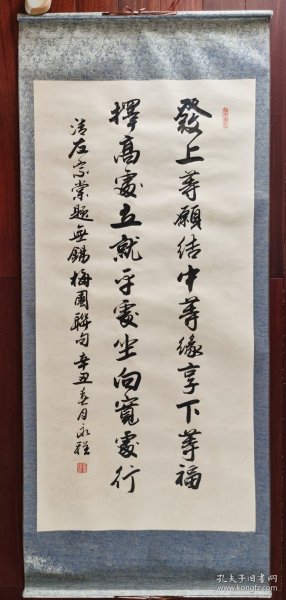 發上等願結中等緣享下等福
擇高處立就平處坐向寬處行
清左宗棠題無錫梅園聯句辛丑春月永程
孔夫子旧书网
www.kongfz.com